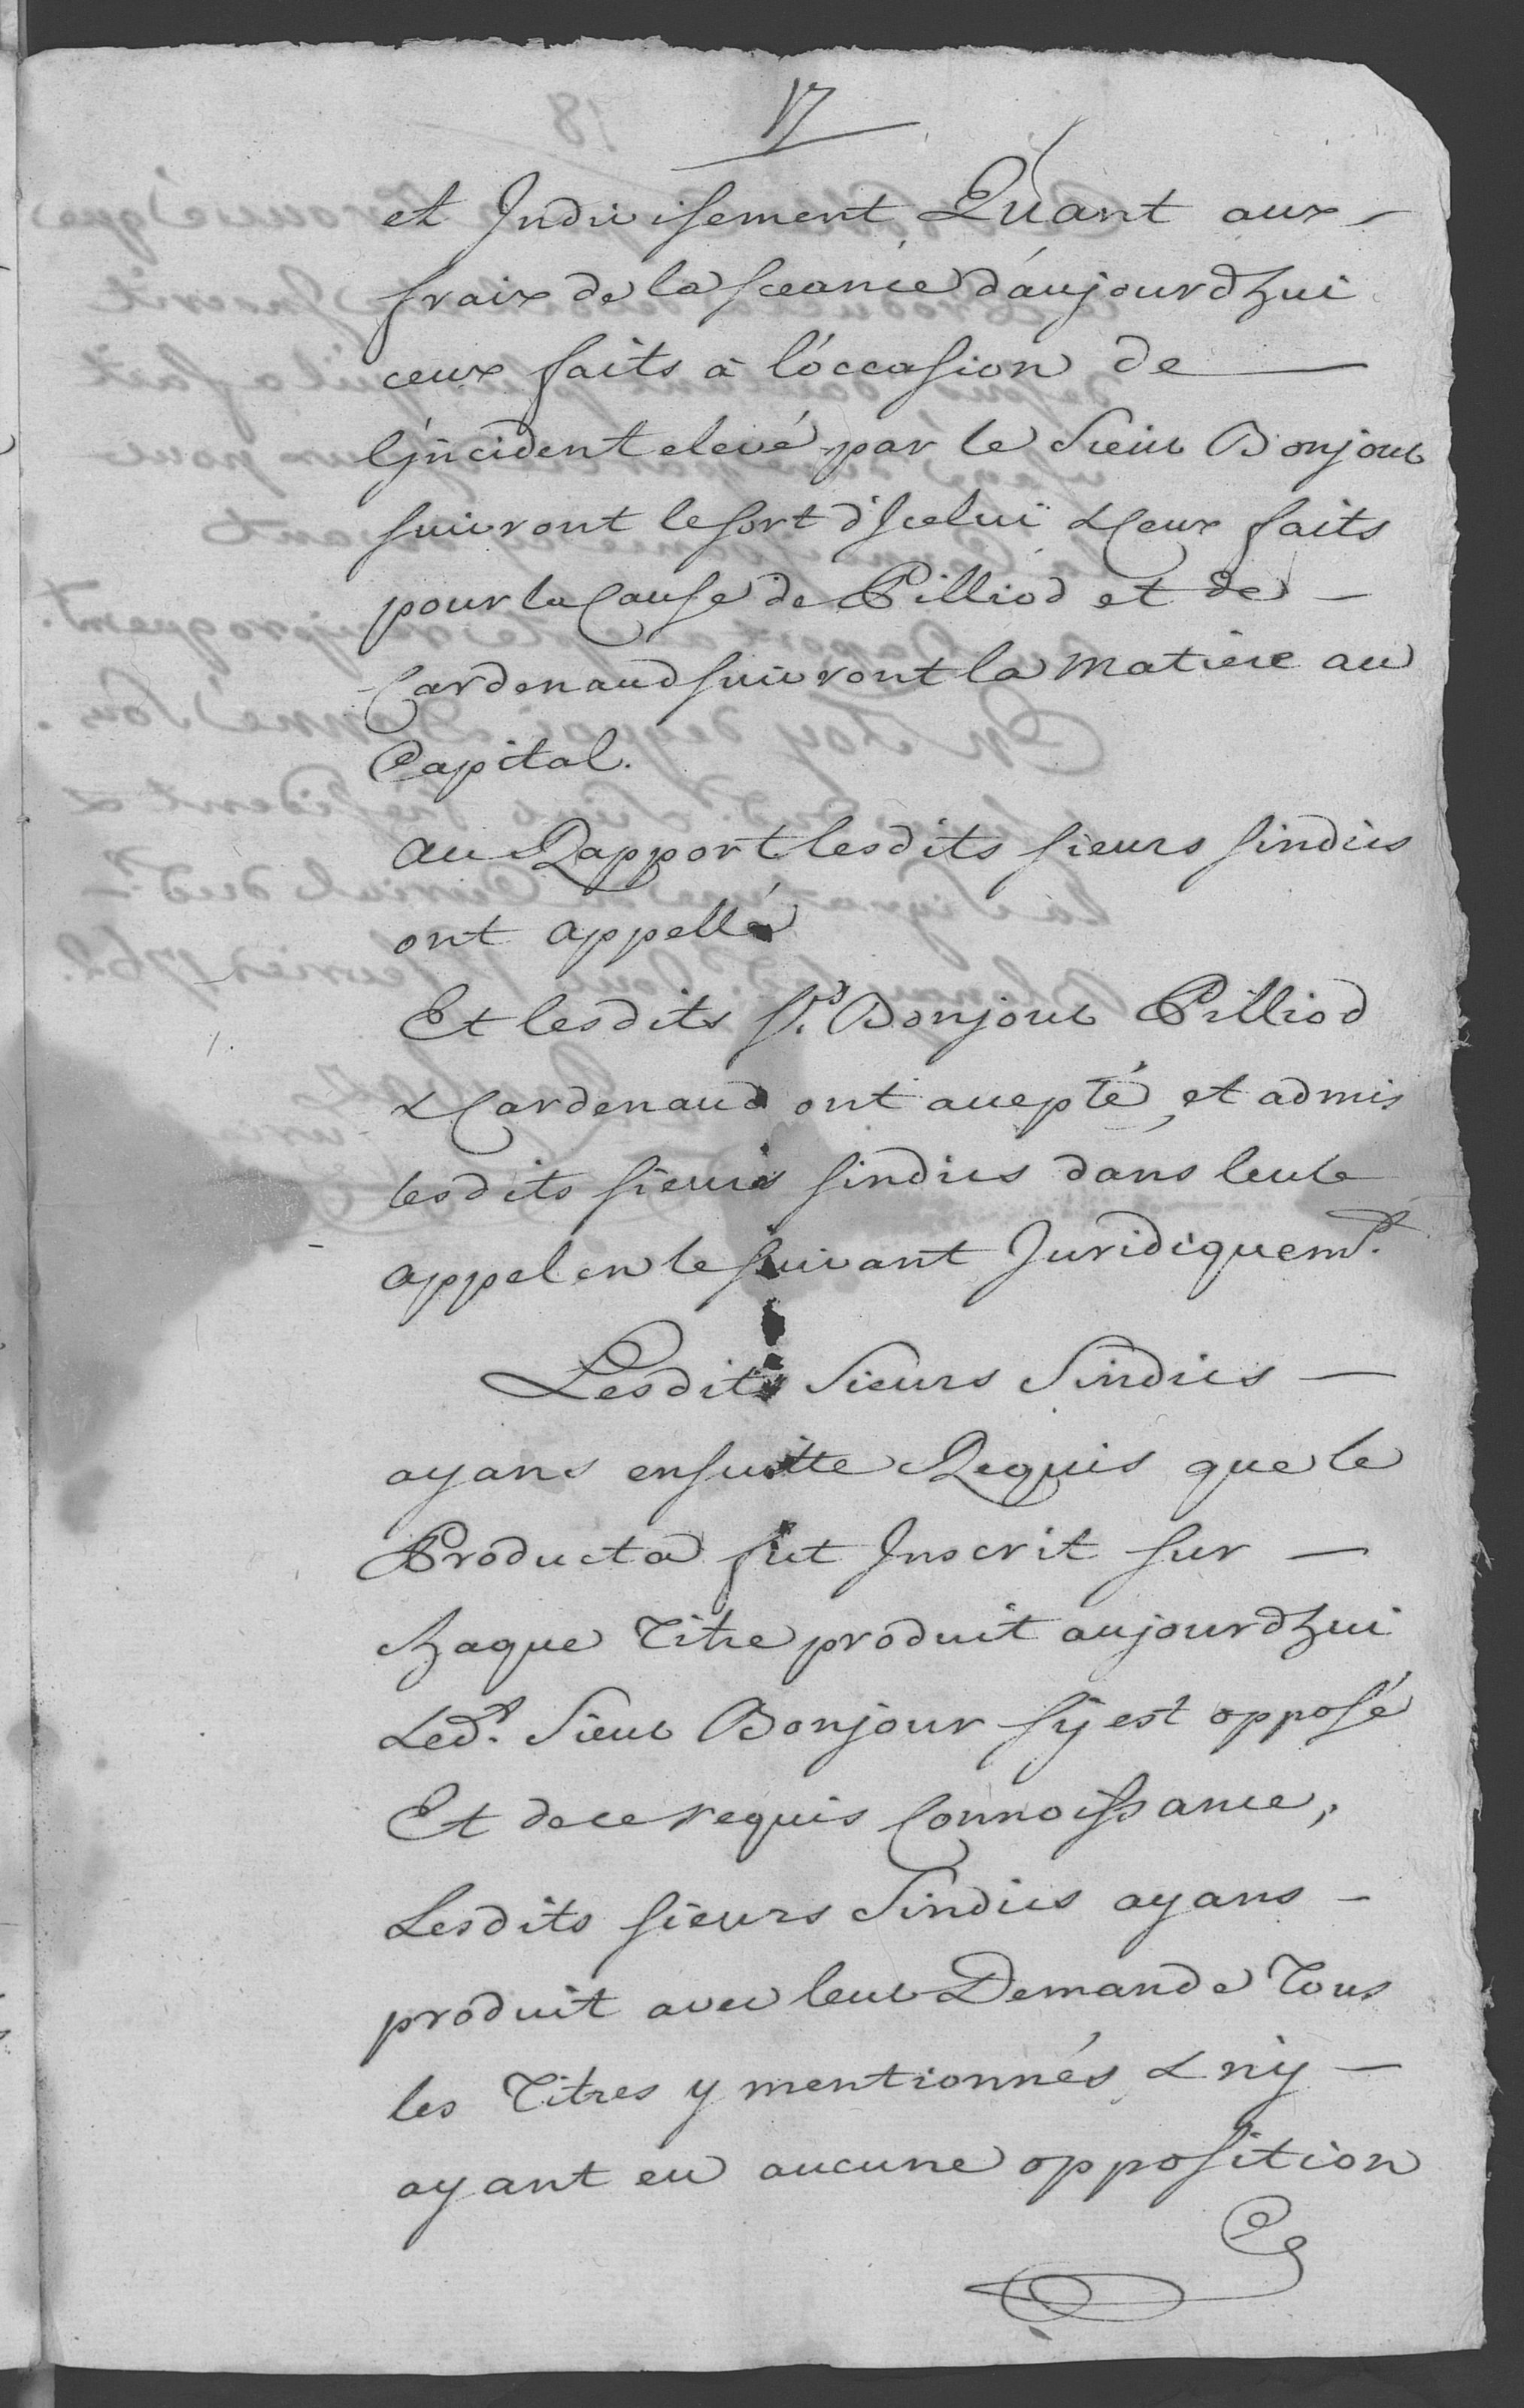 17
et Indivisement, Quant aux
fraix de la sceance d'aujourdhui
ceux faits à l'occasion de
l'jncident elevé par le Sieur Bonjour
suivront le sort d'Jceluï & Ceux faits
pour la Cause de Pilliod et de
Cardenaud suivront la matiere au
Capital.
au Rapport lesdits sieurs sindics
ont appellé
Et lesdits srs. Bonjour Pilliod
& Cardenaud ont accepté, et admis
lesdits sieurs sindics dans leur
appel en le suivant Juridiquemt.
Lesdits Sieurs Sindics
ayans ensuitte Requis que le
Producta fut Inscrit sur
chaque Titre produit aujourdhui
Ledt. Sieur Bonjour s'y est opposé
Et de ce requis Connoissance,
Lesdits sieurs Sindics ayans
produit avec leur Demande Tous
les Titres y mentionnés & n'y
ayant eu aucune opposition